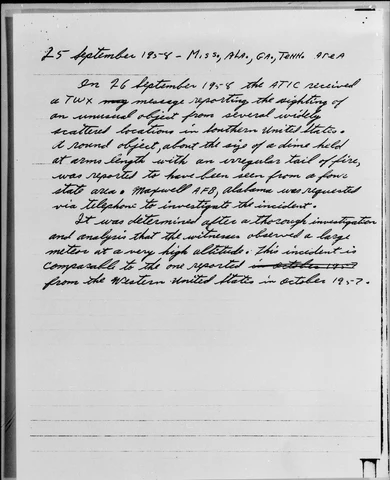 25 September 1958 - Miss., Ala., Ga., Tenn. area
On 26 September 1958 the ATIC received
a TWX may message reporting the sighting of
an unusual object from several widely
scattered locations in southern United States.
A round object, about the size of a dime held
at arms length with an irregular tail of fire,
was reported to have been seen from a four
state area. Maxwell AFB, Alabama was requested
via telephone to investigate the incident.
It was determined after a thorough investigation
and analysis that the witnesses observed a large
meteor at a very high altitude. This incident is
comparable to the one reported in October 1957
from the Western United States in October 1957.